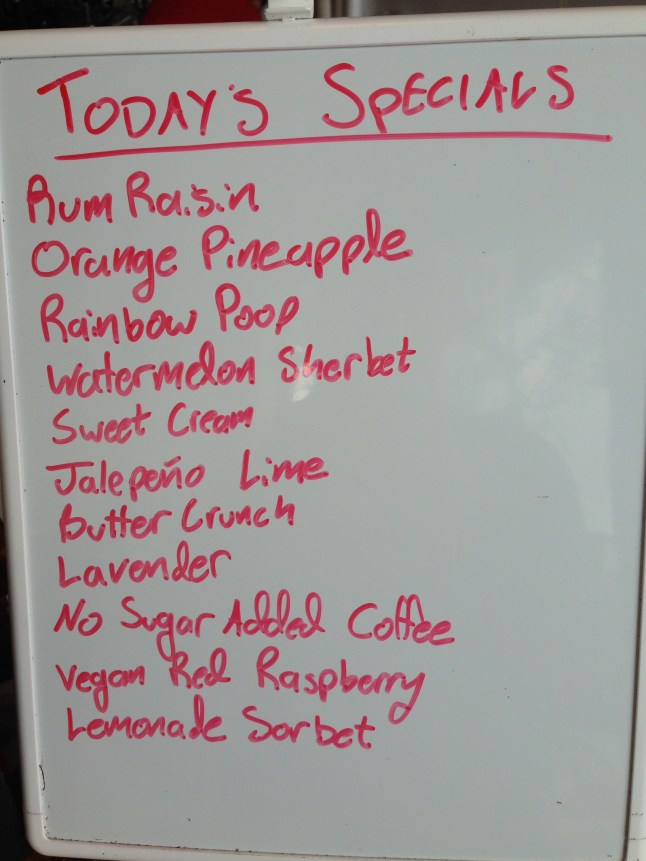 TODAY'S SPECIALS
Rum Raisin
Orange Pineapple
Rainbow Poop
Watermelon Sherbet
Sweet Cream
Jalepeño Lime
Butter Crunch
Lavender
No Sugar Added Coffee
Vegan Red Raspberry
Lemonade Sorbet